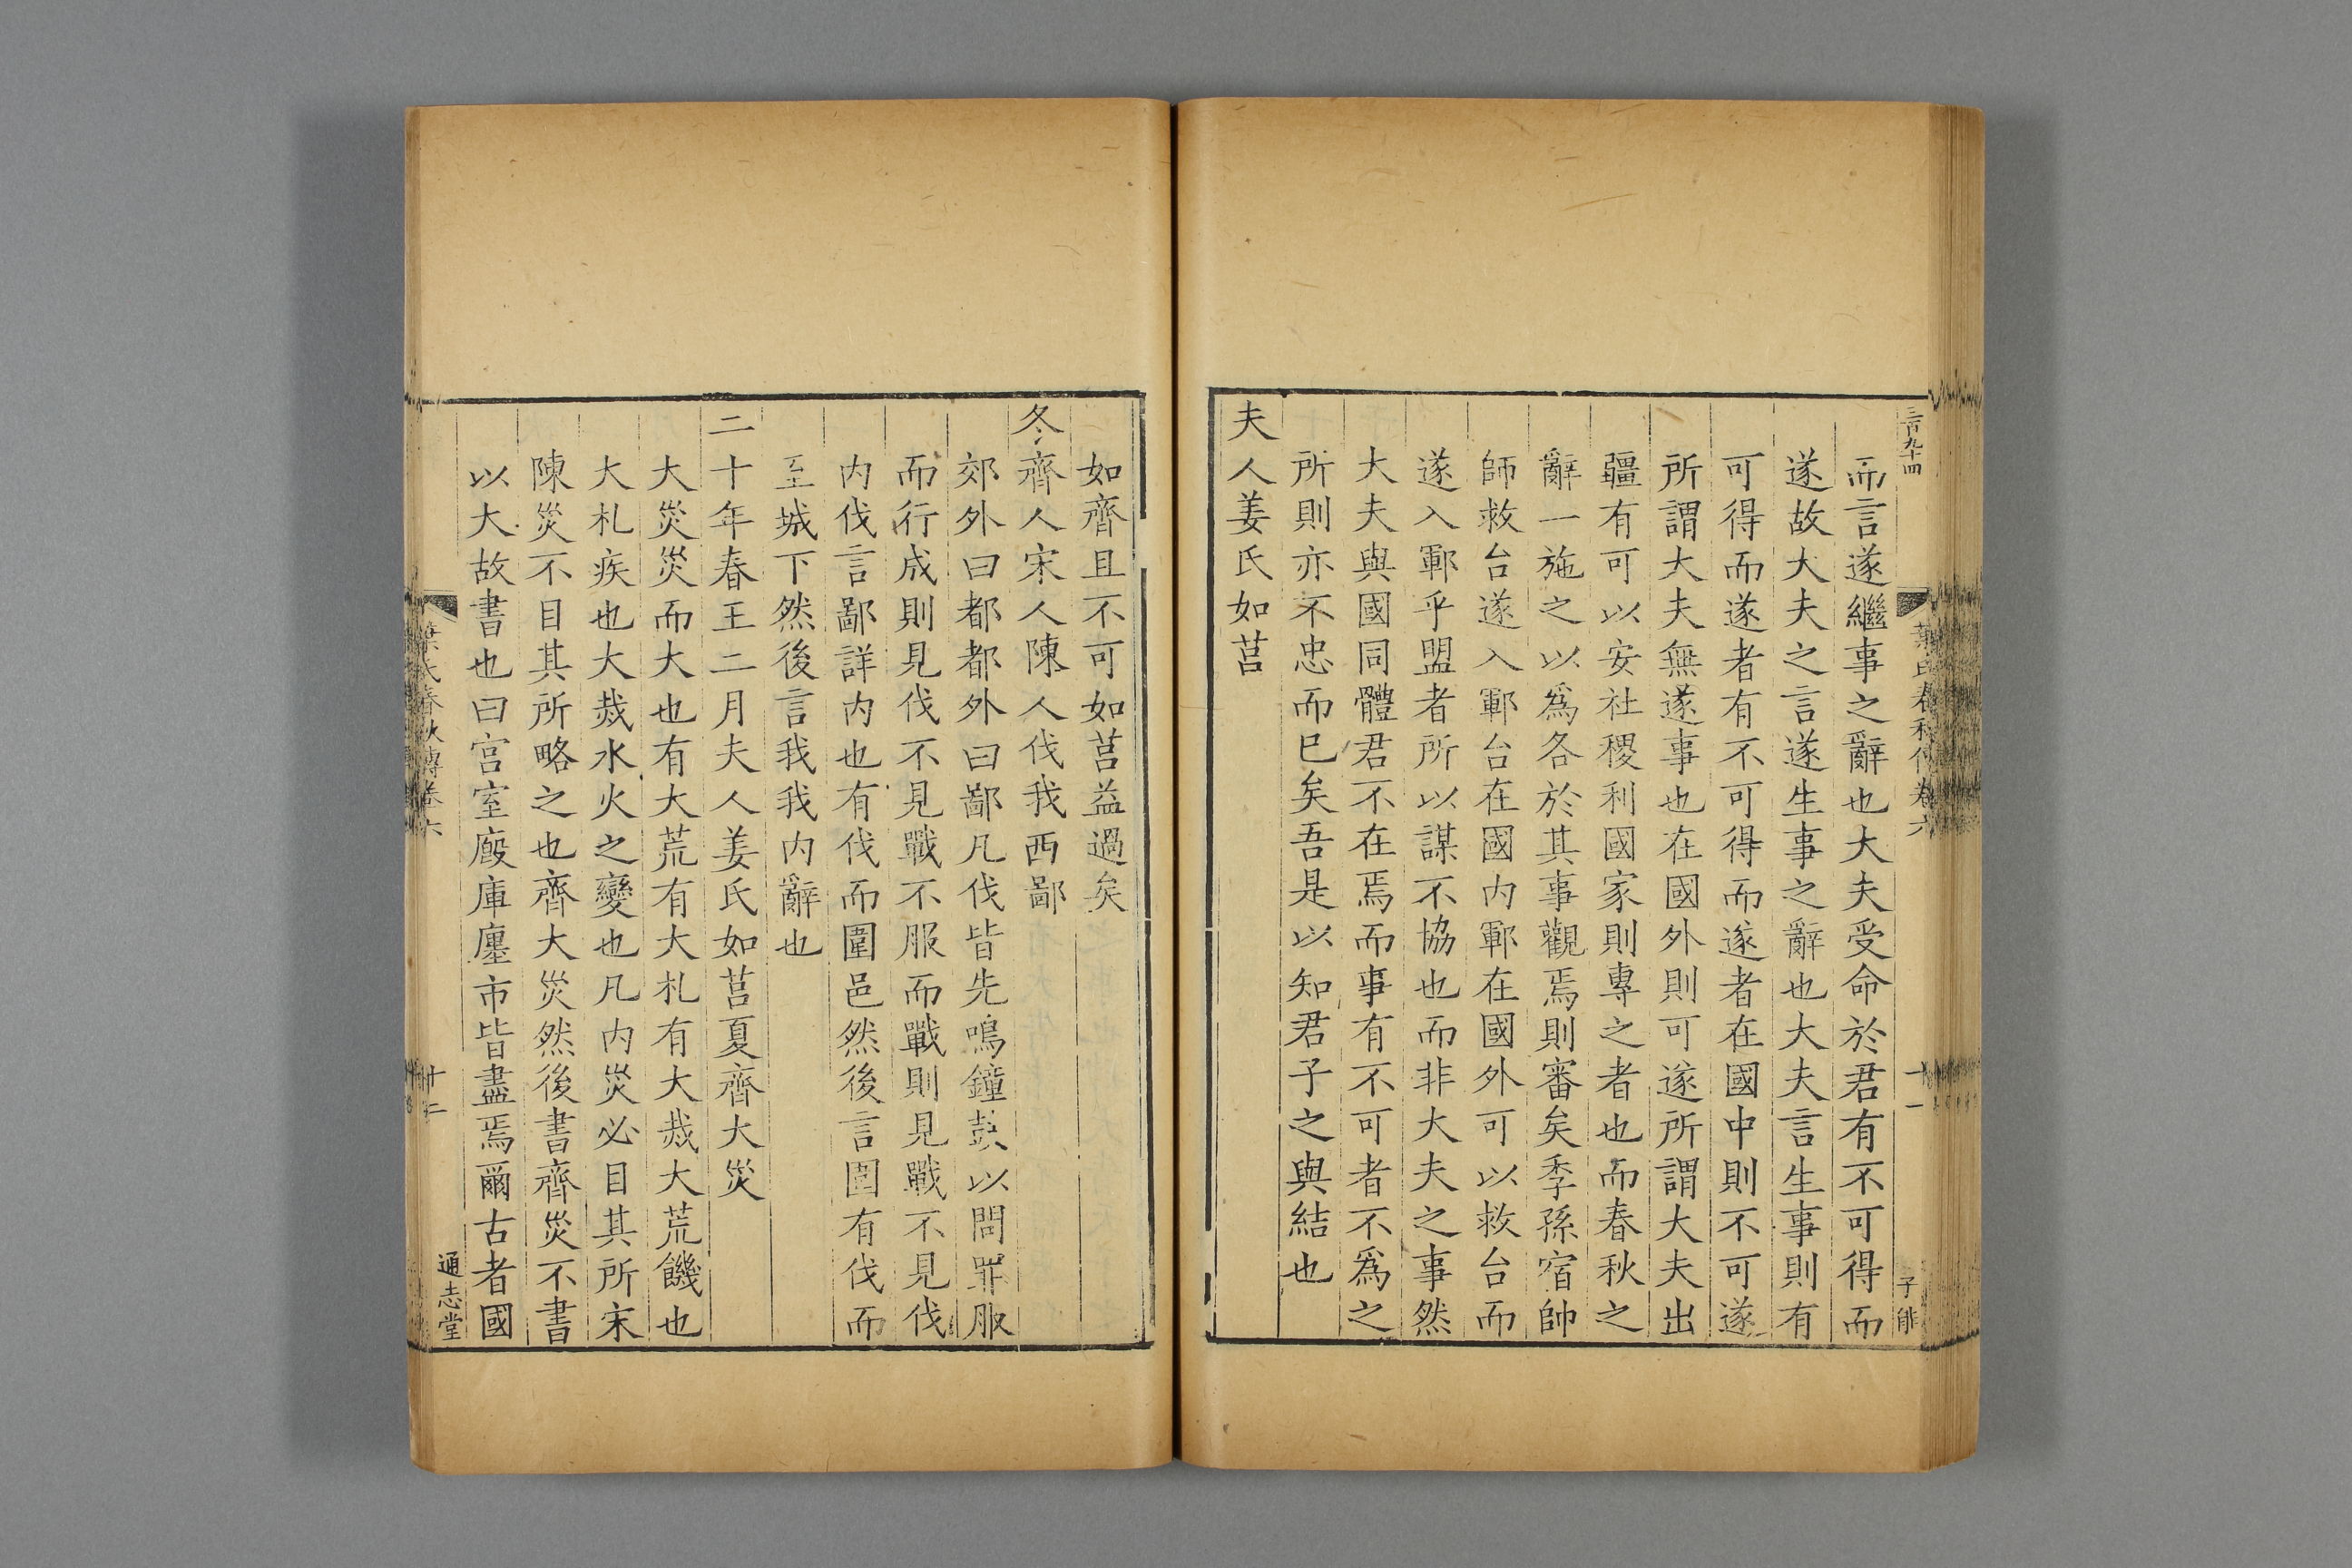 三百九十四
葉氏春秋傳卷六
十一
子能
而言遂繼事之辭也大夫受命於君有不可得而
遂故大夫之言遂生事之辭也大夫言生事則有
可得而遂者有不可得而遂者在國中則不可遂
所謂大夫無遂事也在國外則可遂所謂大夫出
疆有可以安社稷利國家則專之者也而春秋之
辭一施之以爲各於其事觀焉則審矣季孫宿帥
師救台遂入鄆台在國内鄆在國外可以救台而
遂入鄆乎盟者所以謀不協也而非大夫之事然
大夫與國同體君不在焉而事有不可者不爲之
所則亦不忠而已矣吾是以知君子之與結也
夫人姜氏如莒
如齊且不可如莒益過矣
冬齊人宋人陳人伐我西鄙
郊外曰都都外曰鄙凡伐皆先鳴鐘鼓以問罪服
而行成則見伐不見戰不服而戰則見戰不見伐
内伐言鄙詳内也有伐而圍邑然後言圍有伐而
至城下然後言我我内辭也
二十年春王二月夫人姜氏如莒夏齊大災
大災災而大也有大荒有大札有大烖大荒饑也
大札疾也大烖水火之變也凡内災必目其所宋
陳災不目其所略之也齊大災然後書齊災不書
以大故書也曰宫室廏庫廛市皆盡焉爾古者國
葉氏春秋傳卷六
十二
通志堂